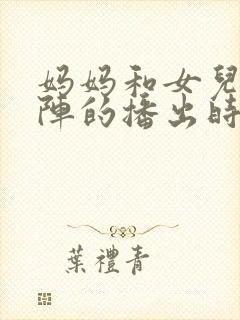 妈妈和女兒
陣的播出時
葉禮青